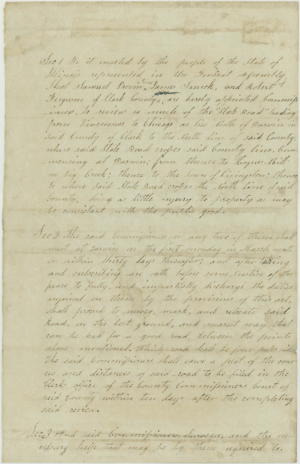 Sec 1 Be it enacted by the people of the State of
Illinois represented in the General Assembly,
That Samuel Prevo, James Lanick, and Robert
Ferguson of Clark County, are hereby appointed Commiss-
ioners, to review so much of the State Road leading
from Vincennes to Chicago as lies North of Darwin in
said County of Clark to the North line of said County
where said State Road crosses said County line, Com-
mencing at Darwin; from thence to Mill
on big creek; thence to the town of Livingston; thence
to where said State Road crosses the North line of said
County, doing as little injury to property as may
be consistent with the public good.
Sec 2 The said Commissioners or any two of them shall
meet at Darwin on the first monday in March next
or within thirty days thereafter; and after taking
and subscribing an oath before some Justice of the
peace to fully, and impartially discharge the duties
enjoined on them by the provisions of this act,
shall proceed to survey, mark, and relocate said
Road, on the best ground, and nearest way, that
can be had for a good road, between the points
above mentioned, which road shall be four poles wide
The said Commissioners shall cause a plat of the cour-
ses and distances of said road to be filed in the
Clerk office of the County Commissioners Court of
said County within ten days after the completing
said review.
Sec. 3 And said Commissioners, Surveyor and the ne-
cessary help that may be by them required to